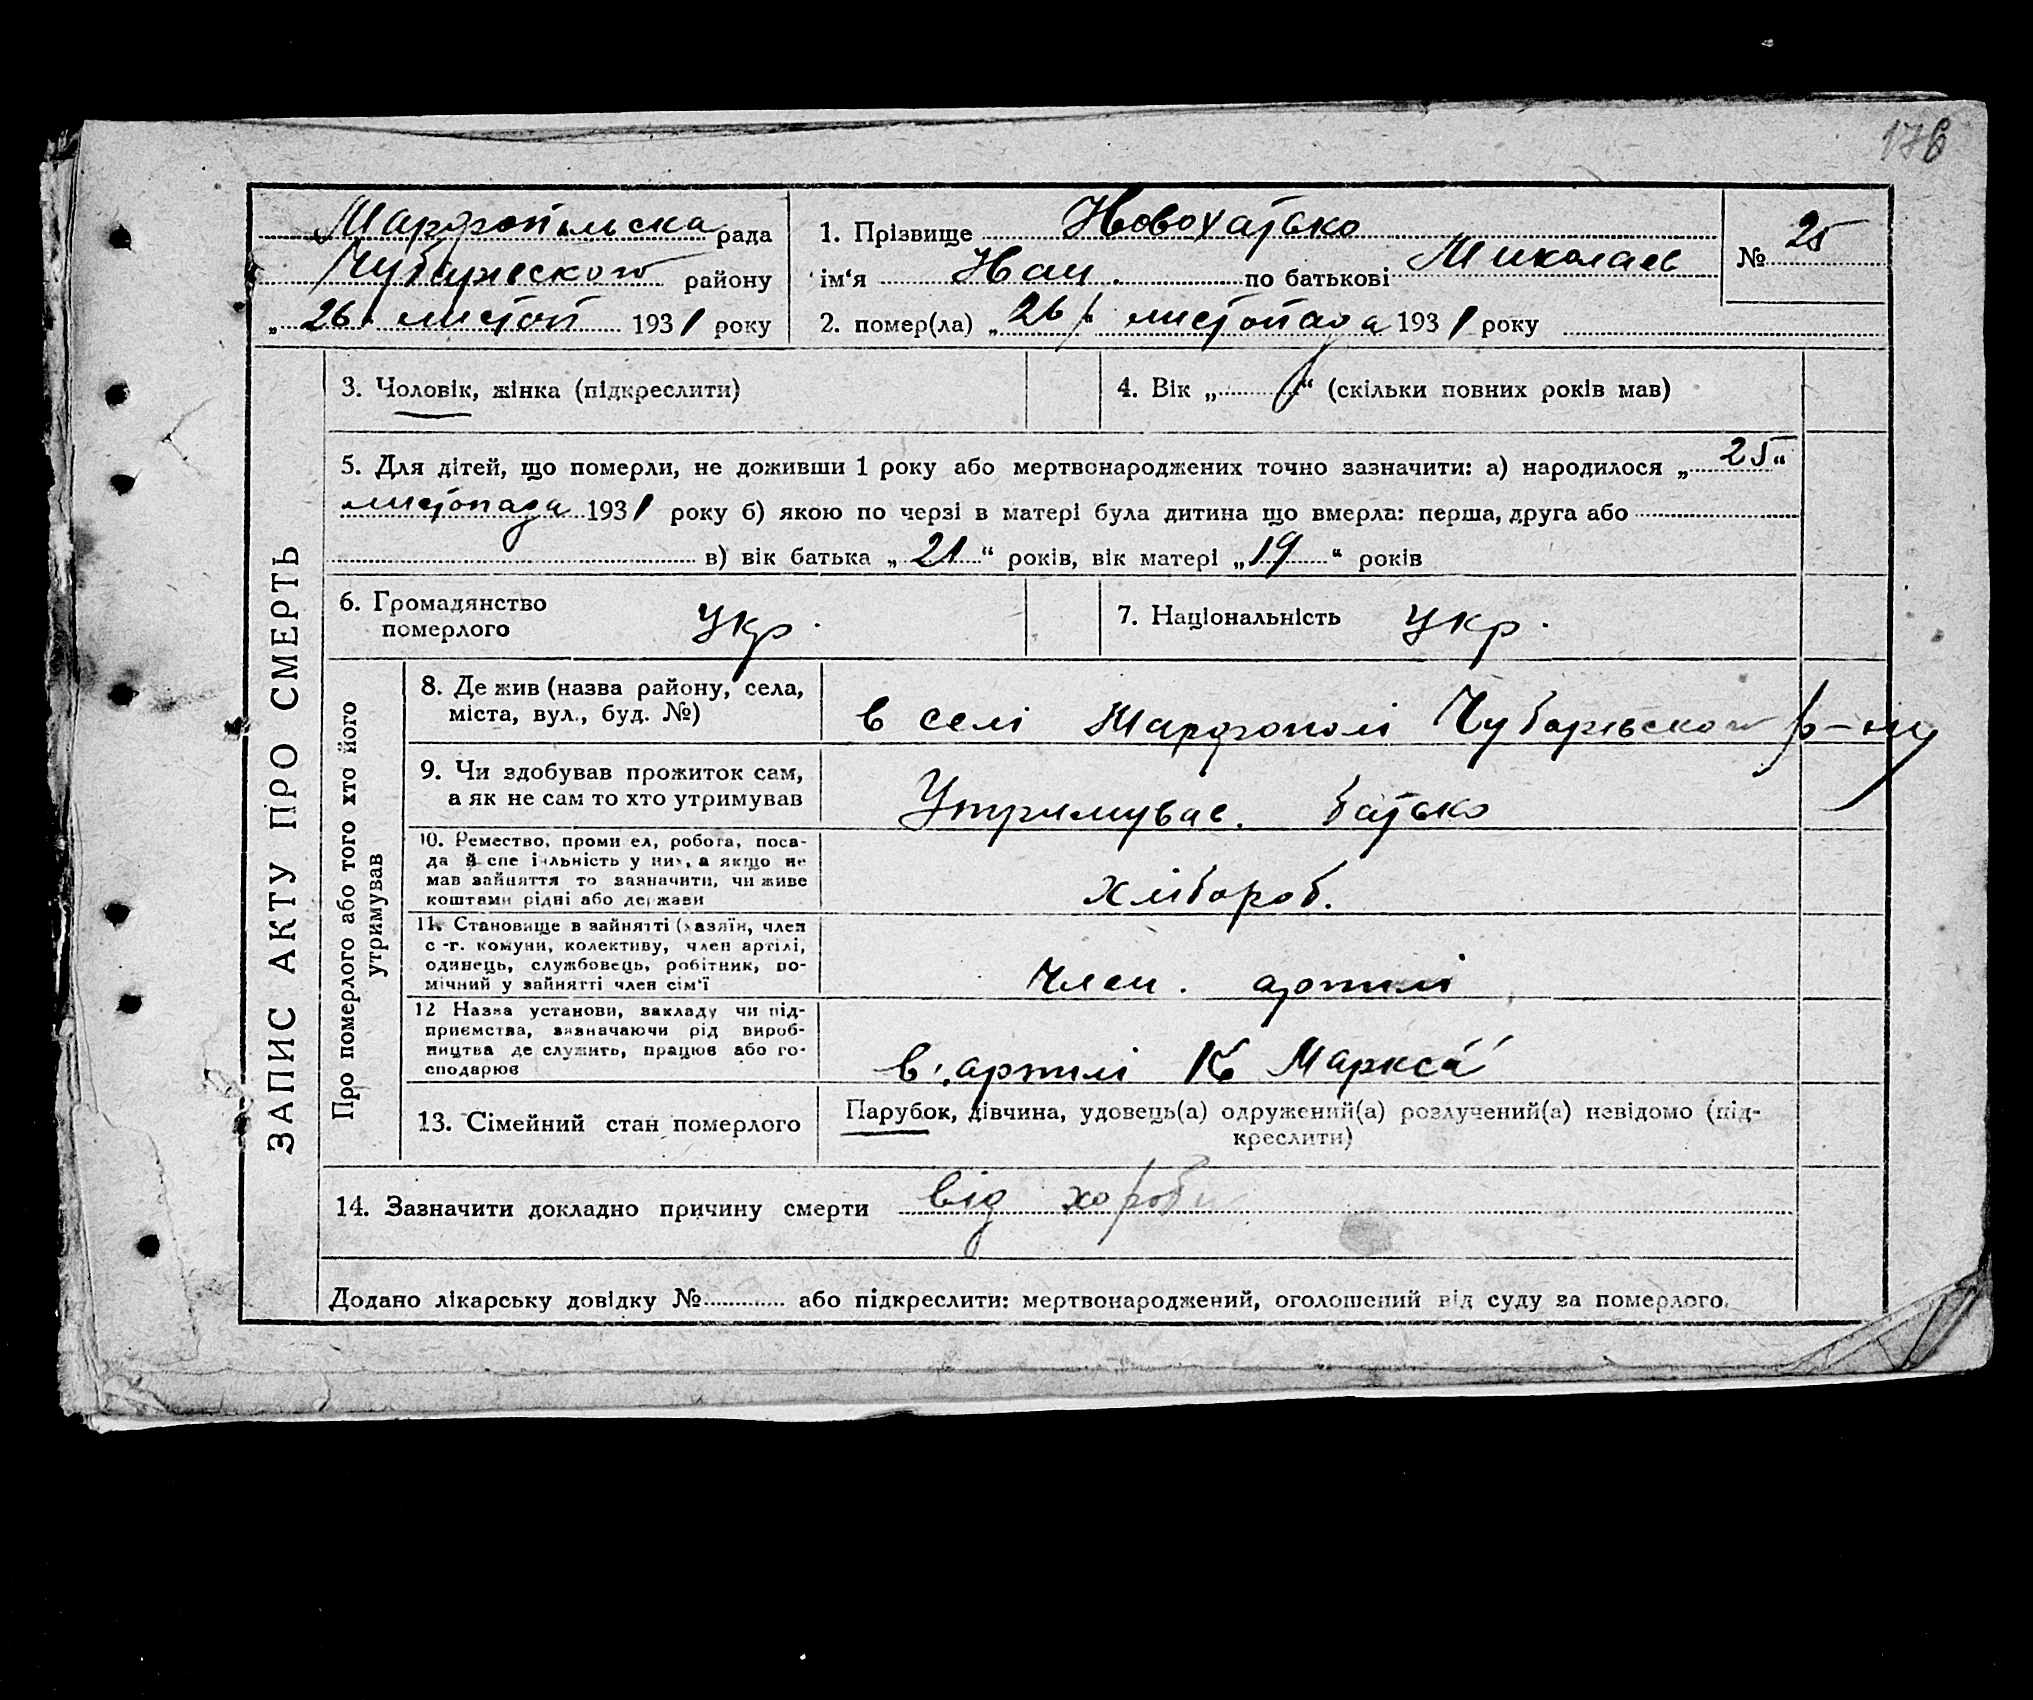 176
Марфопільска рада
Чубарівского району
„ 26 " листоп 1931 року
1. Прізвище Новохатько
ім'я Иван. по батькові Миколаев
2. помер(ла) „ 26 " листопада 1931 року
№ 25
3. Чоловік, жінка (підкреслити)
4. Вік „ " (скільки повних років мав)
5. Для дітей, що померли, не доживши 1 року або мертвонароджених точно зазначити: а) народилося „ 25 "
листопада 1931 року б) якою по черзі в матері була дитина що вмерла: перша, друга або
в) вік батька „ 21 " років, вік матері „ 19 " років
6. Громадянство
померлого укр.
7. Національність укр.
ЗАПИС АКТУ ПРО СМЕРТЬ
Про померлого або того хто його
утримував
8. Де жив (назва району, села,
міста, вул., буд. №)
в селі Марфополі Чубарівского р-ну
9. Чи здобував прожиток сам,
а як не сам то хто утримував
Утримував. батько
10. Ремество, проми ел, робота, поса-
да й спе і льність у них, а якщо не
мав зайняття то зазначити, чи живе
коштами рідні або держави
хлібороб.
11. Становище в зайнятті (хазяїн, член
с.-г. комуни, колективу, член артілі,
одинець, службовець, робітник, по-
мічний у зайнятті член сім'ї
Член. артилі
12 Назва установи, закладу чи під-
приємства, зазначаючи рід вироб-
ництва де служить, працює або го-
сподарює
в артилі К Маркса
13. Сімейний стан померлого
Парубок, дівчина, удовець(а) одружений(а) розлучений(а) невідомо (під-
креслити)
14. Зазначити докладно причину смерти від хороби
Додано лікарську довідку № або підкреслити: мертвонароджений, оголошений від суду за померлого.